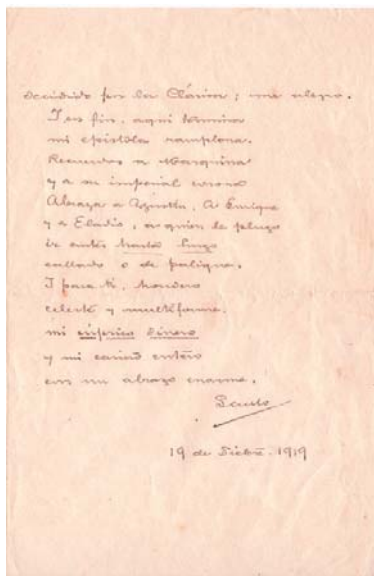 decidido por los Clásicos; me alegro.
Y en fin, aquí termina
mi epístola ramplona.
Recuerdos a Marquina
y a su imperial corona
Abraza a a Enrique
y a Eladio, a quien le plugo
ir antes hasta Lugo
callado o de palique.
Y para ti, trovero
celeste y multiforme,
mi
y mi cariño entero
con un abrazo enorme.
Paulo
19 de Dicbre. 1919